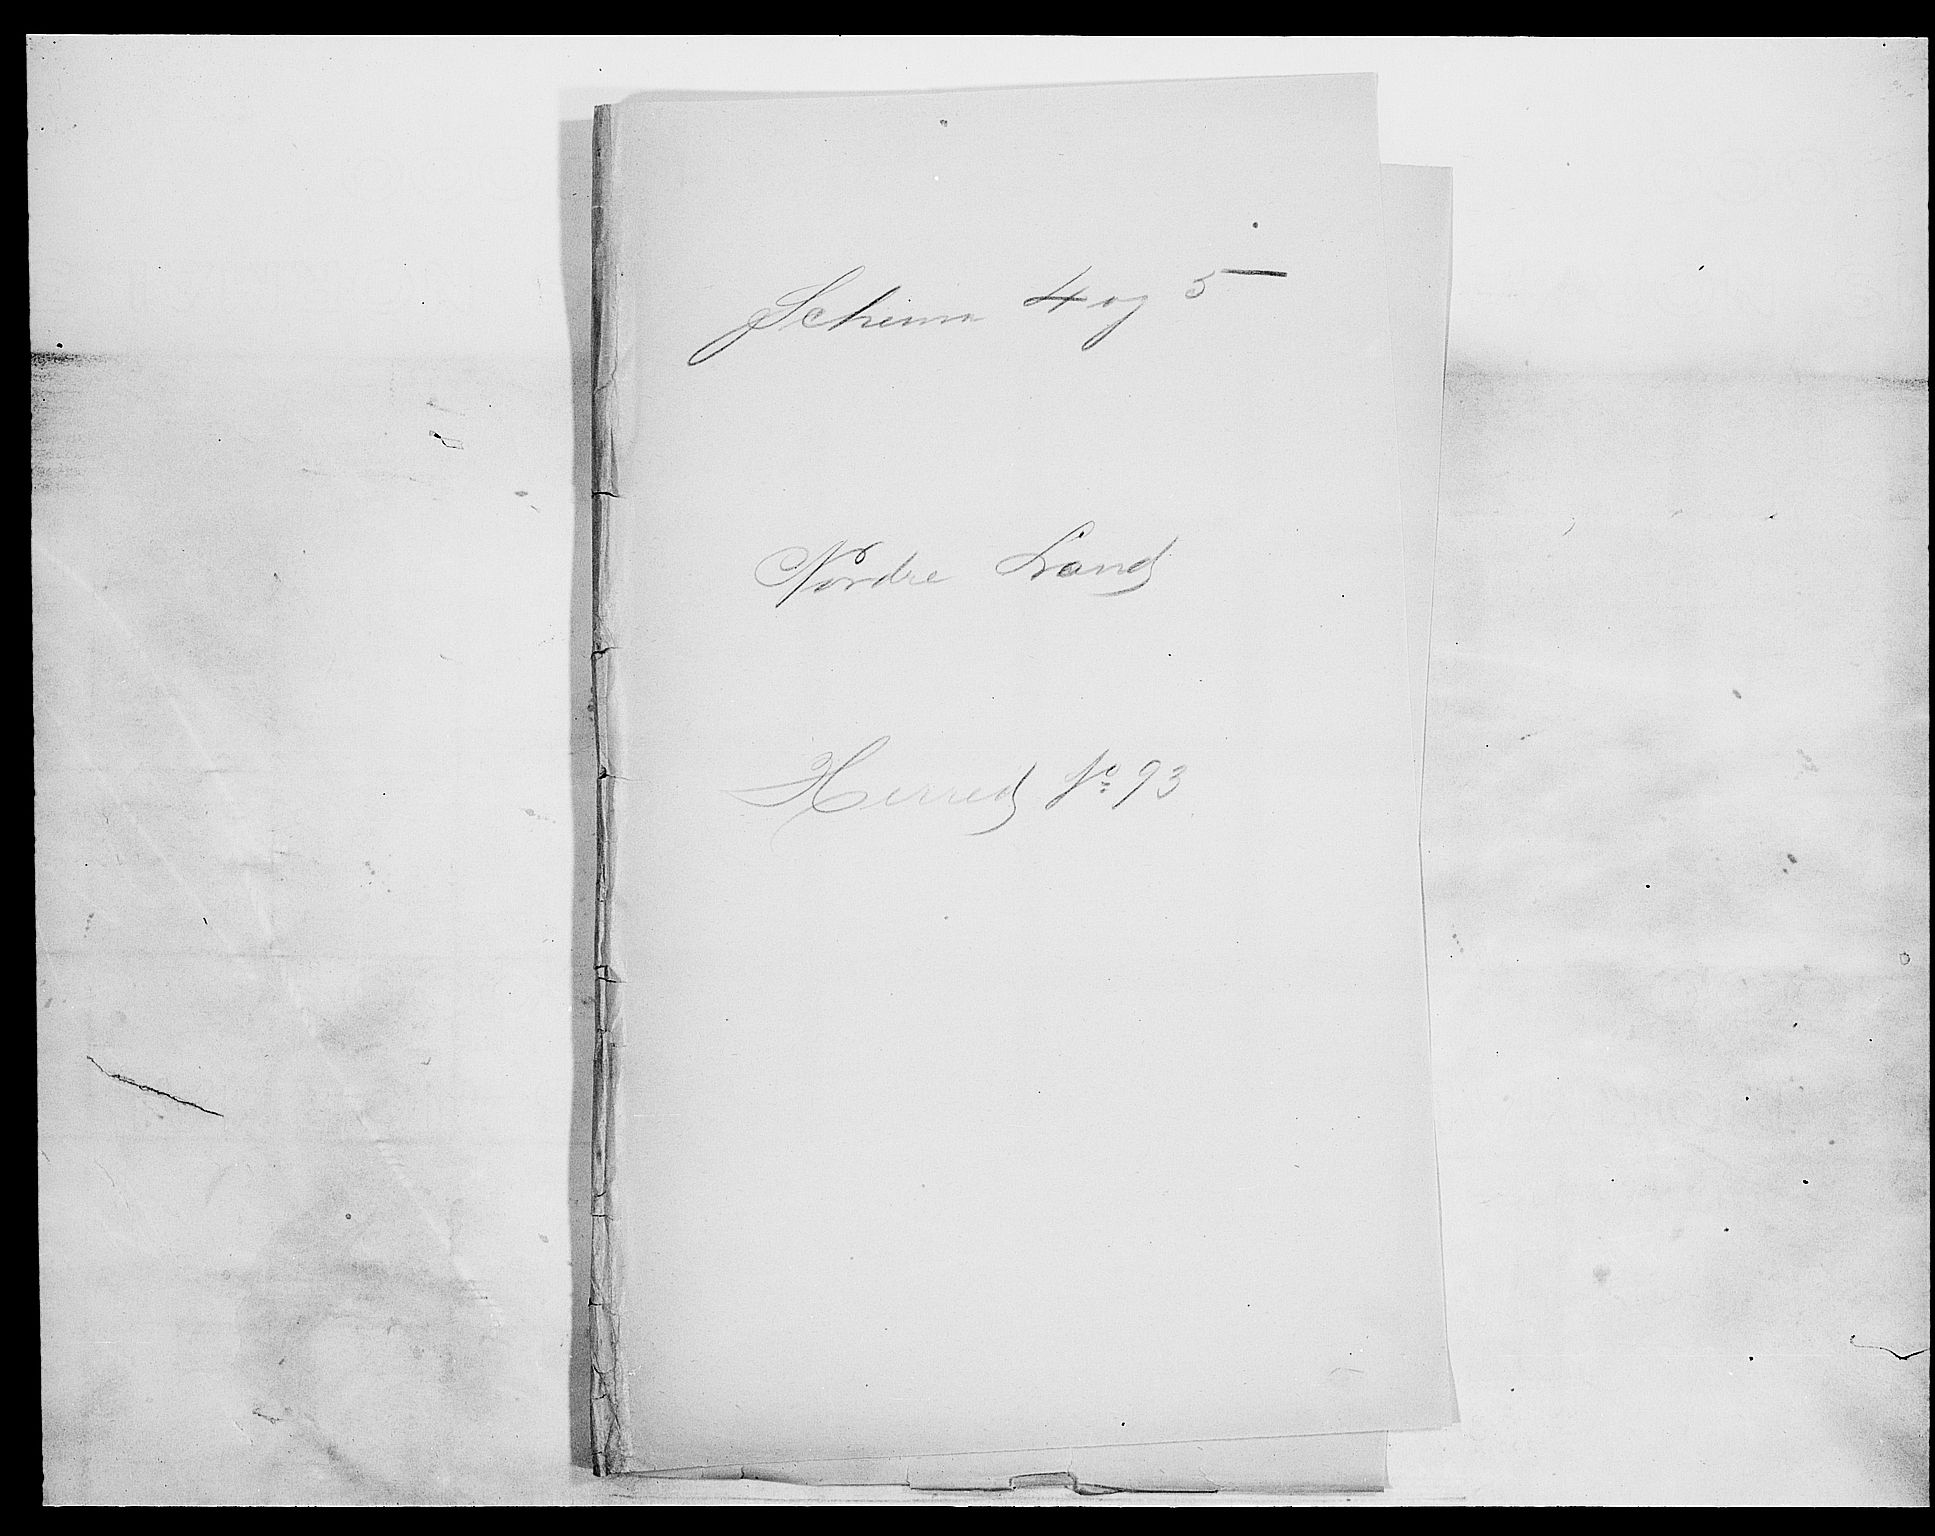 Schema 4 og 5
Nordre Land
Herred No 93